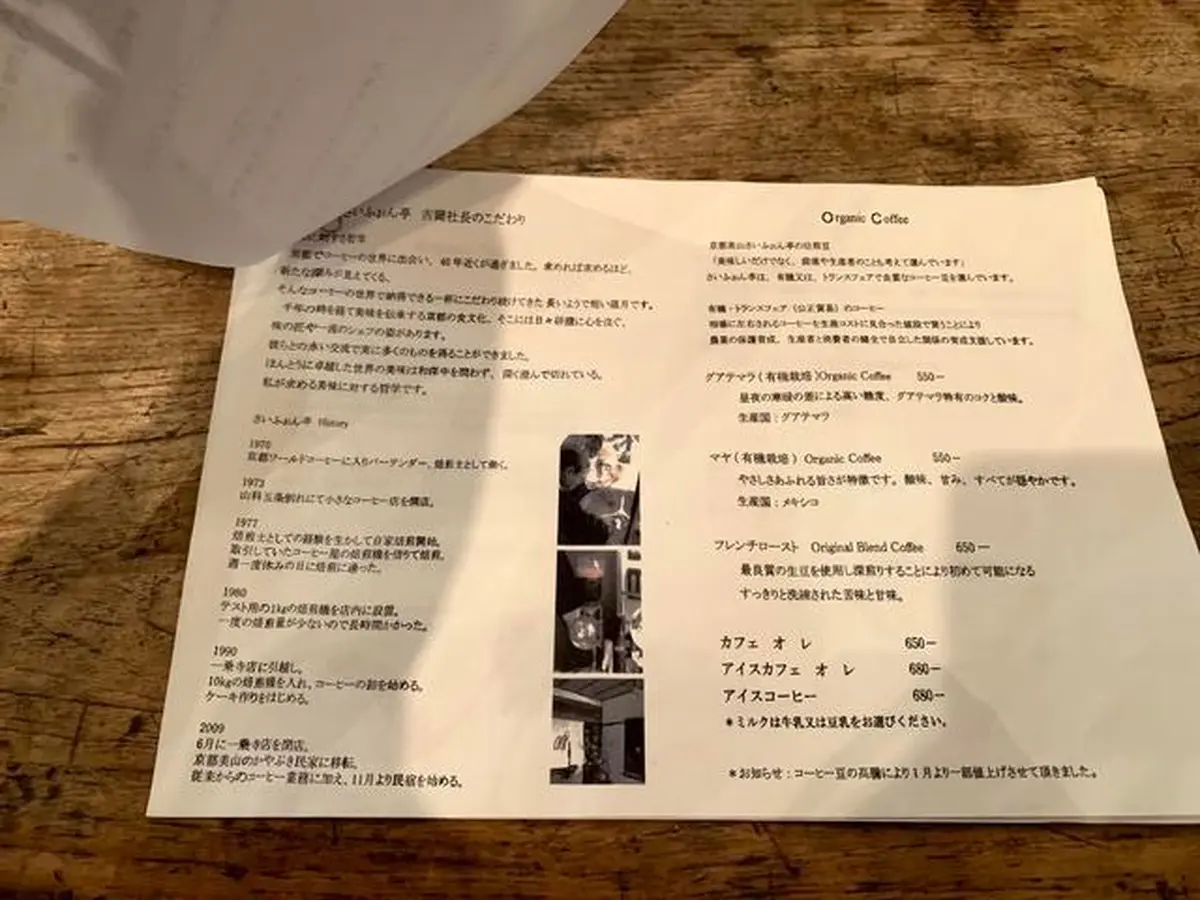 さいふぉん亭 吉岡社長のこだわり
に対する哲学
京都でコーヒーの世界に出会い、40年近くが過ぎました。求めれば求めるほど、
新たな深みが見えてくる、
そんなコーヒーの世界で納得できる一杯にこだわり続けてきた長いようで短い歳月です。
千年の時を経て美味を伝承する京都の食文化、そこには日々研鑽に心を注ぐ、
味の匠や一流のシェフの姿があります。
彼らとの赤い交流で実に多くのものを得ることができました。
ほんとうに卓越した世界の美味は和洋中を問わず、深く澄んで切れている。
私が求める美味に対する哲学です。
さいふぉん亭 History
1970
京都ワールドコーヒーに入りバーテンダー、焙煎士として働く。
1973
山科五条別れにて小さなコーヒー店を開店。
1977
焙煎士としての経験を生かして自家焙煎開始。
取引していたコーヒー屋の焙煎機を借りて焙煎。
週一度休みの日に焙煎に通った。
1980
テスト用の1kgの焙煎機を店内に設置。
一度の焙煎量が少ないので長時間かかった。
1990
一乗寺店に引越し。
10kgの焙煎機を入れ、コーヒーの卸を始める。
ケーキ作りをはじめる。
2009
6月に一乗寺店を閉店。
京都美山のかやぶき民家に移転。
従来からのコーヒー業務に加え、11月より民宿を始める。
Organic Coffee
京都美山さいふぉん亭の焙煎豆
「美味しいだけでなく、環境や生産者のことも考えて選んでいます」
さいふぉん亭は、有機又は、トランスフェアで良質なコーヒー豆を選んでいます。
有機・トランスフェア（公正貿易）のコーヒー
相場に左右されるコーヒーを生産コストに見合った値段で買うことにより
農薬の保護育成、生産者と消費者の健全で自立した関係の育成支援しています。
グアテマラ（有機栽培）Organic Coffee 550−
昼夜の寒暖の差による高い糖度、グアテマラ特有のコクと酸味。
生産国：グアテマラ
マヤ（有機栽培） Organic Coffee 550−
やさしさあふれる旨さが特徴です。酸味、甘み、すべてが穏やかです。
生産国：メキシコ
フレンチロースト Original Blend Coffee 650−
最良質の生豆を使用し深煎りすることにより初めて可能になる
すっきりと洗練された苦味と甘味。
カフェ オ レ 650−
アイスカフェ オ レ 680−
アイスコーヒー 680−
＊ミルクは牛乳又は豆乳をお選びください。
＊お知らせ：コーヒー豆の高騰により1月より一部値上げさせて頂きました。